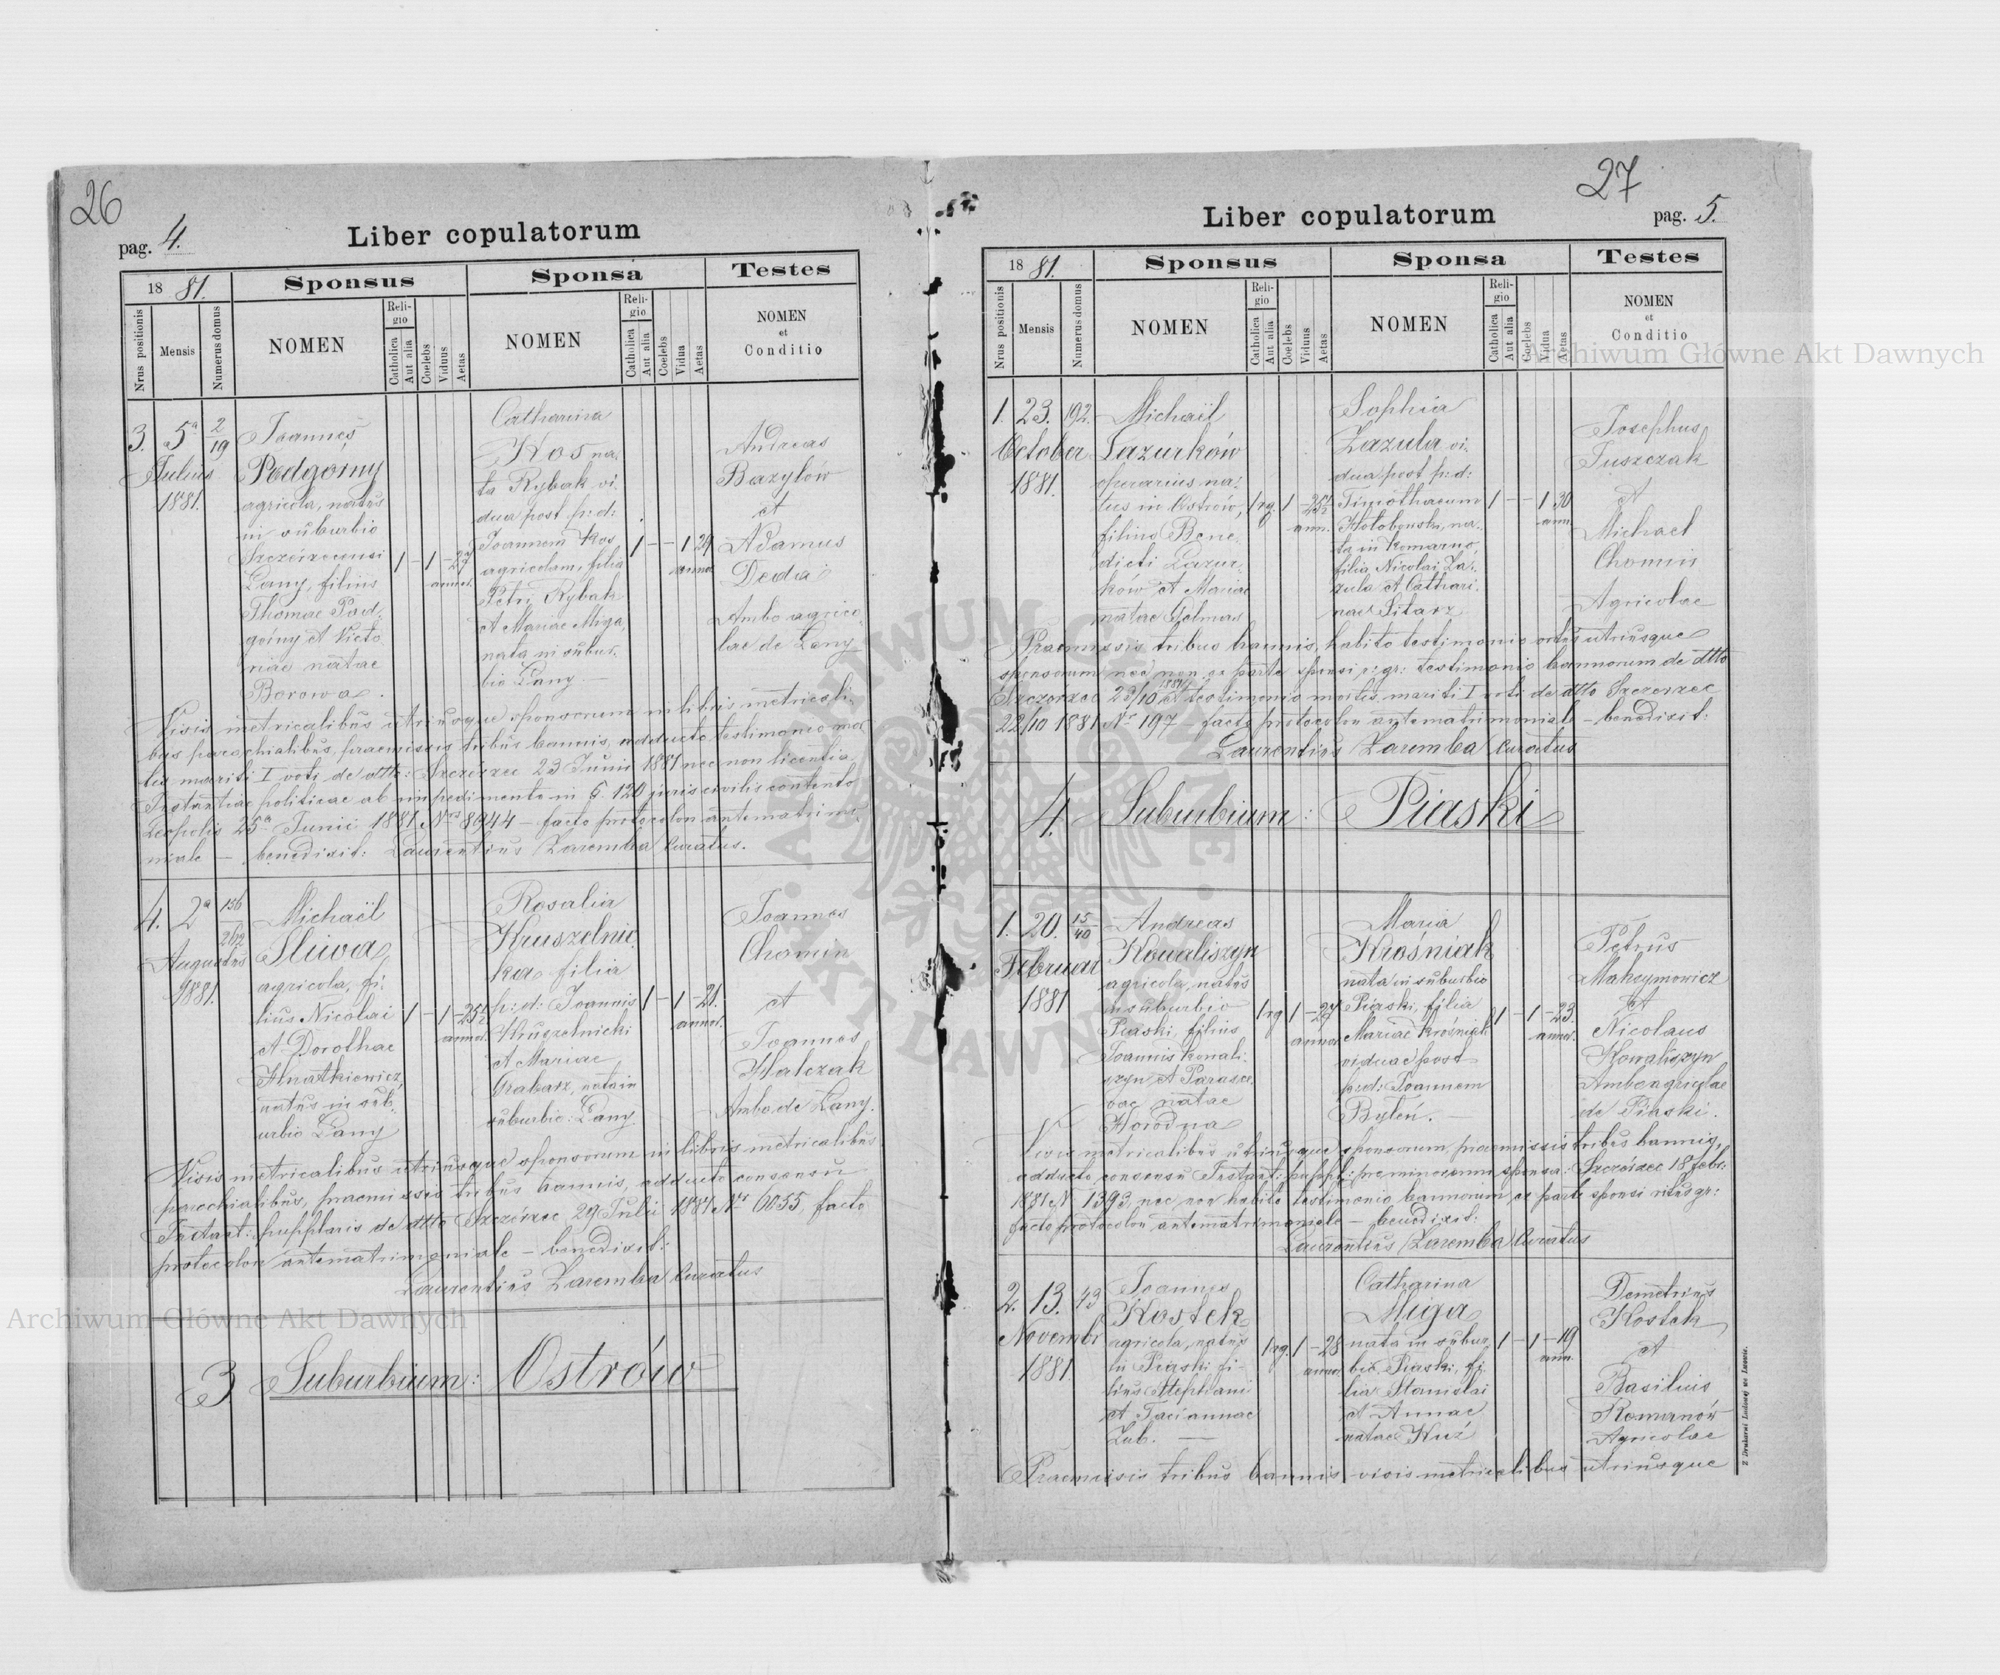 26
pag. 4.
Liber copulatorum
18 81.
Sponsus
Sponsa
Testes
Nrus positionis
Mensis
Numerus domus
NOMEN
Religio
Catholica
Aut alia
Coelebs
Viduus
Aetas
NOMEN
Religio
Catholica
Aut alia
Coelebs
Vidua
Aetas
NOMEN
et
Conditio
3. 5a 2/19
Julius
1881.
Joannes
Podgorny
agricola, natus
in suburbio
Szczerzecensi
Łany, filius
Thomae Pod-
gorny et Victo
riae natae
Borowa.
1 - 1 - 27
annor.
Catharina
Kos na-
ta Rybak vi-
dua post p: d:
Joannem Kos
agricolam, filia
Petri Rybak
et Mariae Miga,
nata in subur-
bio Łany —
1 - - 1 29
annor.
Andreas
Bazylów
et
Adamus
Deda
Ambo agrico
lae de Łany
Visis metricalibus utriusque sponsorum in libris metricali-
bus parochialibus, praemissis tribus bannis, adducto testimonio mor
tis mariti I voti de dtto: Szczerzec 23 Junii 1881 nec non licentia
Instantiae politicae ab impedimento in § 120 juris civilis contento
Leopolis 25a Junii 1881 Nro 8944 – facto protocolon antematrimo-
niale – benedixit: Laurentius Zaremba Curatus.
4. 2a 156
262
Augustus
1881.
Michaël
Sliwa
agricola, fi-
lius Nicolai
et Dorothae
Hnatkiewicz,
natus in sub-
urbio Łany
1 - 1 - 25½
annor.
Rosalia
Kruszelnic
ka filia
p: d: Joannis
Kruszelnicki
et Mariae
Grabarz, nata in
suburbio: Łany
1 - 1 - 21.
annor.
Joannes
Chomin
et
Joannes
Halczak
Ambo de Łany.
Visis metricalibus utriusque sponsorum in libris metricalibus
parochialibus, praemissis tribus bannis, adducto consensu
Instant: pupplaris de dtto Szczérzec 29 Julii 1881 Nr 6055, facto
protocolon antematrimoniale – benedixit:
Laurentius Zaremba Curatus
3 Suburbium: Ostrów
27
Liber copulatorum
pag. 5.
18 81.
Sponsus
Sponsa
Testes
Nrus positionis
Mensis
Numerus domus
NOMEN
Religio
Catholica
Aut alia
Coelebs
Viduus
Aetas
NOMEN
Religio
Catholica
Aut alia
Coelebs
Vidua
Aetas
NOMEN
et
Conditio
1. 23. 192.
October
1881.
Michaël
Lazurków
operarius na-
tus in Ostrów,
filius Bene-
dicti Lazur-
ków et Mariae
natae Golmas
1 rg 1 - 25½
ann.
Sophia
Zazula vi-
dua post p: d:
Timotheum
Hołobowski, na-
ta in Komarno,
filia Nicolai Za-
zula et Cathari
nae Sitarz
1 - - 1 30
ann.
Josephus
Tuszczak
et
Michael
Chomin
Agricolae
Praemissis tribus bannis, habito testimonio ortus utriusque
sponsorum nec non ex parte sponsi r: gr: testimonio bannorum de dtto
Szczerzec 23/10 1881 et testimonio mortis mariti I voti de dtto Szczerzec
22/10 1881 Nr 197 – facto protocolon antematrimoniale – benedixit:
Laurentius Zaremba Curatus
4. Suburbium: Piaski
1. 20. 15/40
Februar
1881
Andreas
Kowaliszyn
agricola, natus
in suburbio
Piaski, filius
Joannis Kowali-
szyn et Parasce-
vae natae
Horodna
1 rg 1 - 27
annor
Maria
Krośniak
nata in suburbio
Piaski, filia
Mariae Krośniak
viduae post
p: d: Joannem
Byleń. —
1 - 1 - 23
annor.
Petrus
Maksymowicz
et
Nicolaus
Kowaliszyn
Ambo agricolae
de Piaski.
Visis metricalibus utriusque sponsorum, praemissis tribus bannis,
adducto consensu Instant: puppl: pro minorenni sponsa: Szczérzec 18 febr:
1881 N. 1393 nec non habito testimonio bannorum ex parte sponsi ritus gr:
facto protocolon antematrimoniale – benedixit:
Laurentius Zaremba Curatus
2. 13. 43
Novembr
1881.
Joannes
Kostek
agricola, natus
in Piaski fi-
lius Stephani
et Taciannae
Zub. —
1 rg. 1 - 28
annor
Catharina
Miga
nata in subur-
bio Piaski, fi-
lia Stanislai
et Annae
natae Kuź
1 - 1 - 19
ann.
Demetrius
Kostek
et
Basilius
Romanów
Agricolae
Praemissis tribus bannis – visis metricalibus utriusque
Z Drukarni Ludowej we Lwowie.
Archiwum Główne Akt Dawnych
Archiwum Główne Akt Dawnych
ARCHIWUM GŁÓWNE
AKT DAWNYCH